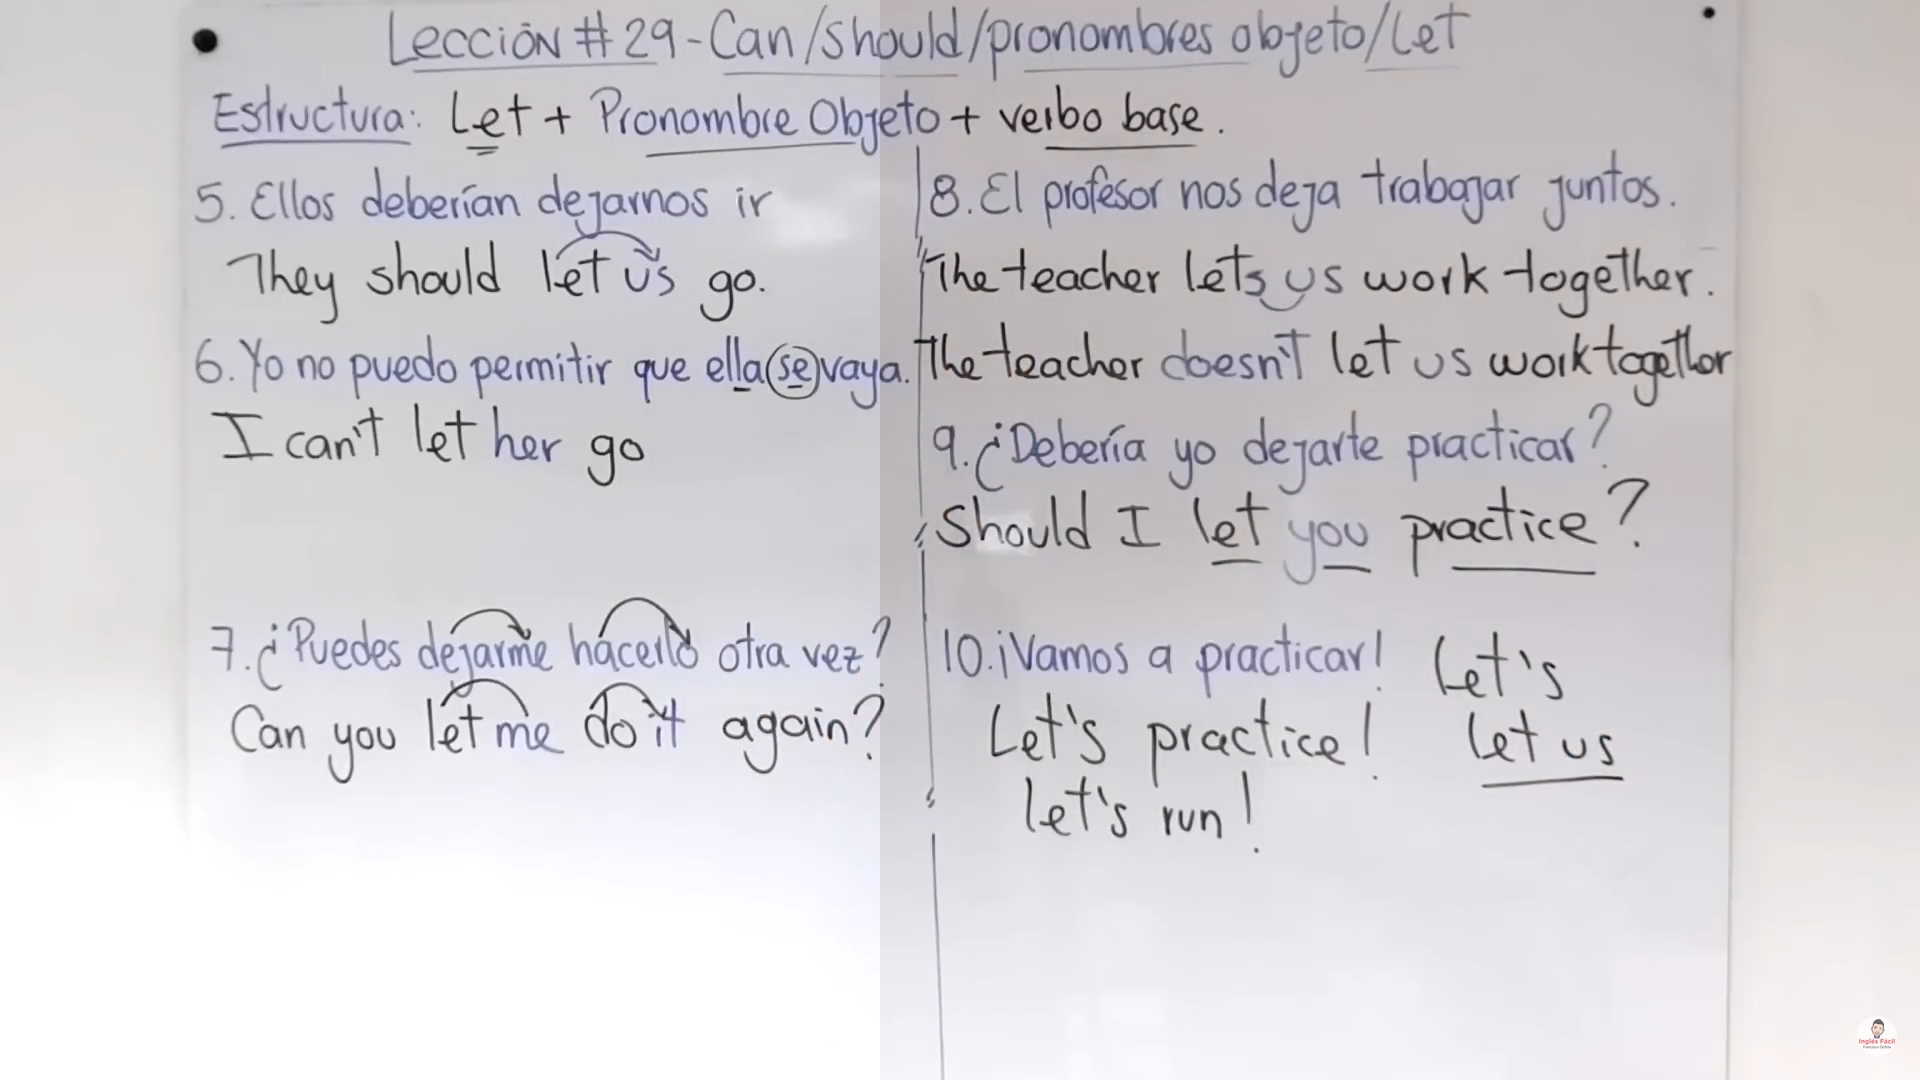 Lección # 29 - Can/should/pronombres objeto/Let
Estructura: Let + Pronombre Objeto + verbo base.
5. Ellos deberían dejarnos ir
They should let us go.
6. Yo no puedo permitir que ella se vaya.
I can't let her go
7. ¿Puedes dejarme hacerlo otra vez?
Can you let me do it again?
8. El profesor nos deja trabajar juntos.
The teacher lets us work together.
The teacher doesn't let us work together
9. ¿Debería yo dejarte practicar?
Should I let you practice?
10. ¡Vamos a practicar!
Let's
Let's practice!
let us
let's run!
Inglés Fácil